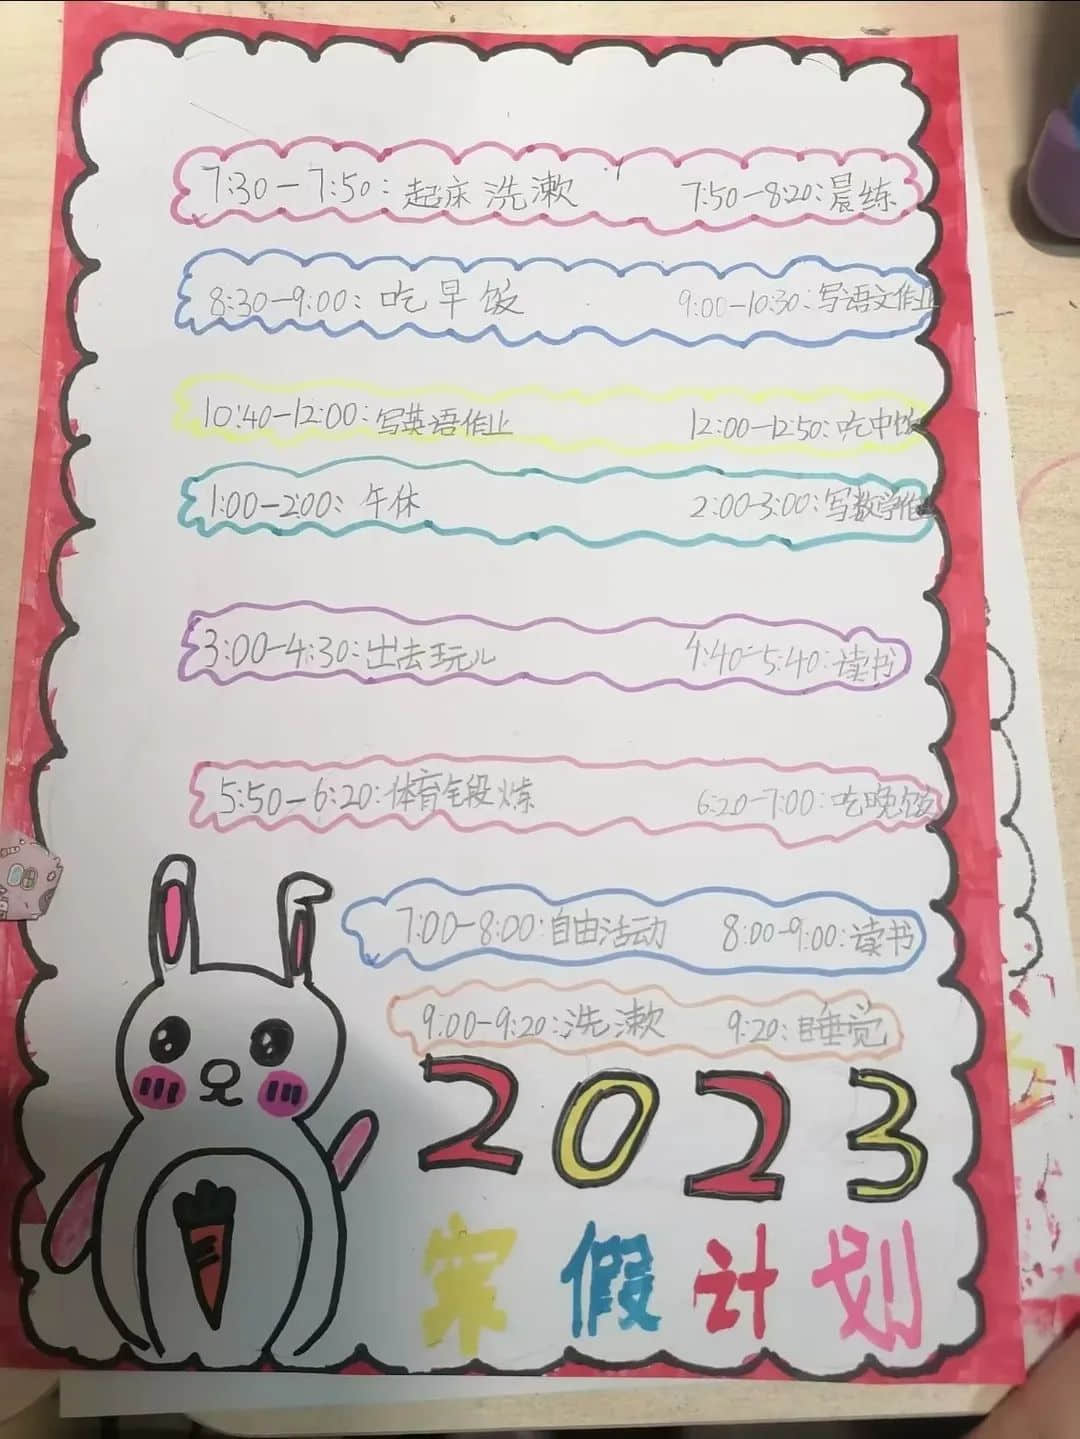 7:30-7:50:起床洗漱 7:50-8:20:晨练
8:30-9:00:吃早饭 9:00-10:30:写语文作业
10:40-12:00:写英语作业 12:00-12:50:吃中饭
1:00-2:00:午休 2:00-3:00:写数学作
3:00-4:30:出去玩儿 4:40-5:40:读书
5:50-6:20:体育锻炼 6:20-7:00:吃晚饭
7:00-8:00:自由活动 8:00-9:00:读书
9:00-9:20:洗漱 9:20:睡觉
2023
寒假计划